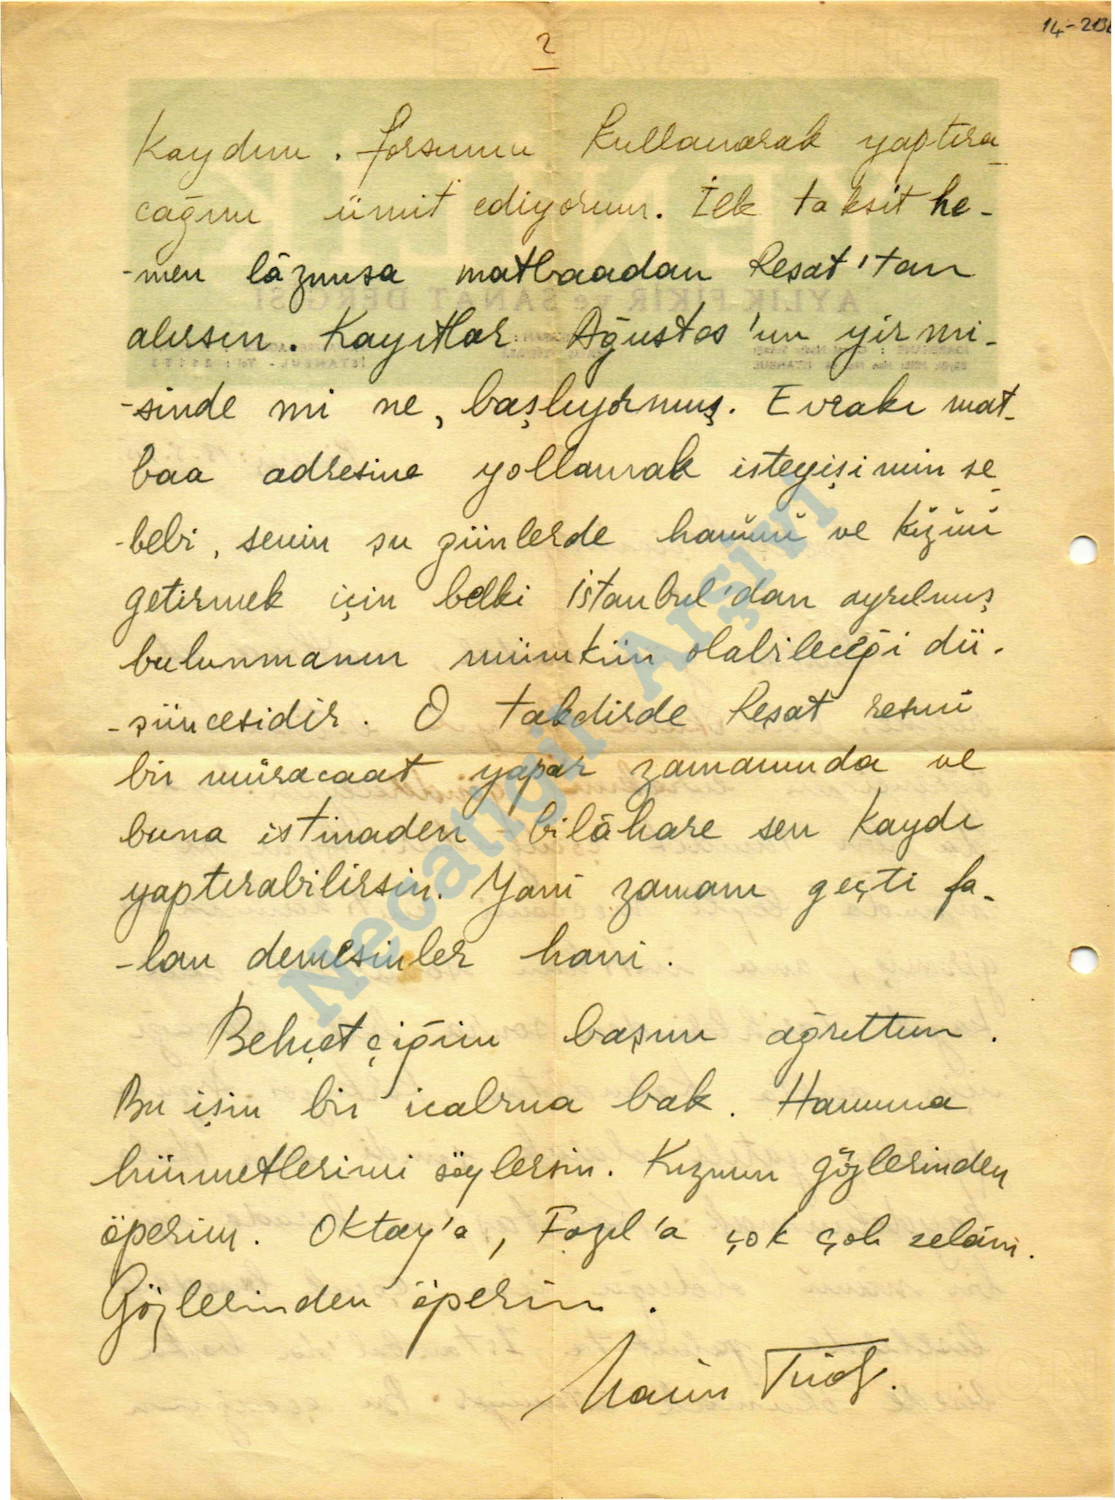 14-213
2
Kaydını. forsunu kullanarak yaptıra
cağını ümit ediyorum. İlk taksit he-
-men lâzımsa matbaadan Reşat'tan
alırsın. Kayıtlar Ağustos'un yirmi-
-sinde mi ne, başlıyormuş. Evrakı mat-
baa adresine yollamak isteyişimin se-
-bebi, senin şu günlerde hanımı ve kızını
getirmek için belki İstanbul'dan ayrılmış
bulunmanın mümkün olabileceği dü-
-şüncesidir. O takdirde Reşat resmî
bir müracaat yapar zamanında ve
buna istinaden bilâhare sen kaydı
yaptırabilirsin. Yani zamanı geçti fa-
-lan demesinler hani.
Behçetçiğim başını ağrıttım.
Bu işin bir icabına bak. Hanımına
hürmetlerimi söylersin. Kızının gözlerinden
öperim. Oktay'a, Fazıl'a çok çok selâm.
Gözlerinden öperim.
AYLIK FİKİR ve SANAT DERGİSİ
Necatigil Arşivi